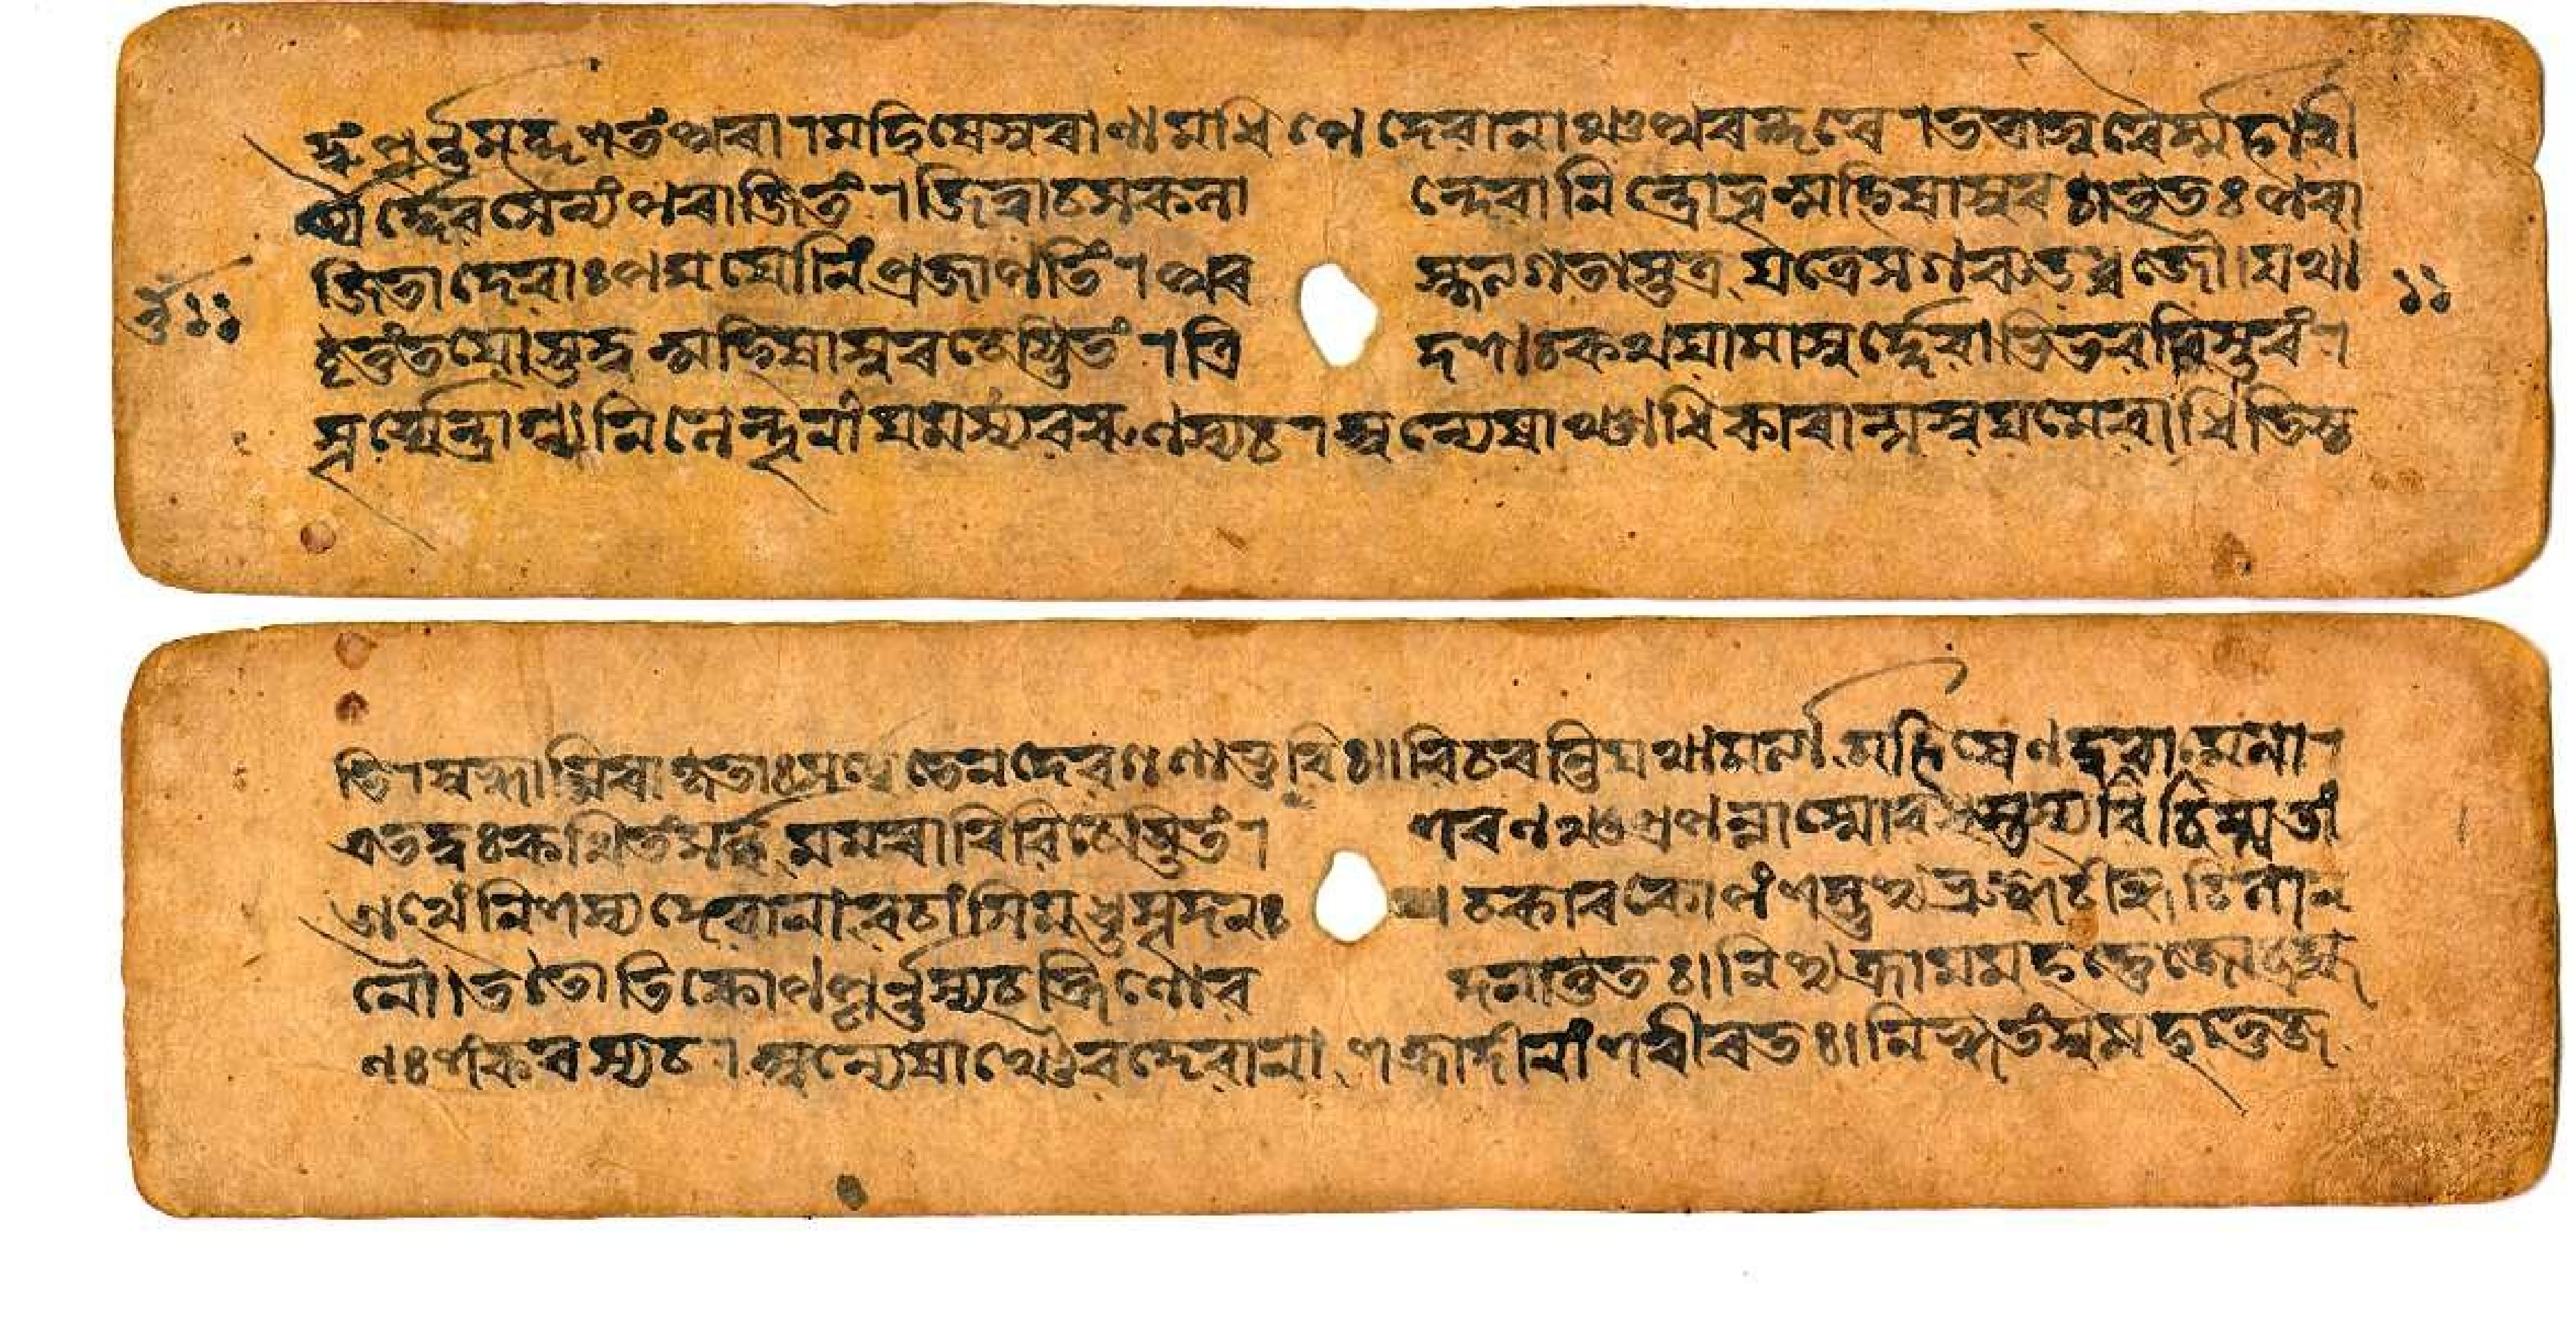 দ্ধং পূর্ণ্ণমব্দশতং পুৰা । মহিষেসুৰাণামধিপে দেৱানাঞ্চ পুৰন্দৰে । তত্ৰাসুৰৈর্ম্মহাৱী
র্য্যৈর্দ্দেৱসৈন্যং পৰাজিতং । জিত্বা চ সকলান্দেৱানিন্দ্রোভূন্মহিষাসুৰঃ । ততঃ পৰা
জিতা দেৱাঃ পদ্মযোনিং প্রজাপতিং । পুৰস্কৃত্য গতাস্তত্র যত্রেশগৰুড়ধ্বজৌ । যথা
বৃত্তং তয়োস্তদ্বন্মহিষাসুৰচেষ্টিতং । ত্রিদশাঃ কথয়ামাসুর্দ্দেৱাভিভৱৱিস্তৰং ।
সূর্য্যেন্দ্রাগ্ন্যনিলেন্দূনাং যমস্য ৱৰুণস্য চ । অন্যেষাঞ্চাধিকাৰান্স স্বয়মেৱাধিতিষ্ঠ
তি । স্বর্গান্নিৰাকৃতাঃ সর্ব্বে তেন দেৱগণা ভুৱি ॥ ৱিচৰন্তি যথা মর্ত্যা মহিষেণ দুৰাত্মনা ।
এতদ্বঃ কথিতং সর্ব্বমমৰাৰিৱিচেষ্টিতং । শৰণঞ্চ প্রপন্নাস্মো ৱধস্তস্য ৱিচিন্ত্যতাং
ইত্থং নিশম্য দেৱানাং ৱচাংসি মধুসূদনঃ । চকাৰ কোপং শম্ভুশ্চ ভ্রুকুটীকুটিলান
নৌ । ততোতিকোপপূর্ণ্ণস্য চক্রিণো ৱদনাত্ততঃ । নিশ্চক্রাম মহত্তেজো ব্রহ্ম
ণঃ শঙ্কৰস্য চ । অন্যেষাঞ্চৈৱ দেৱানাং শক্রাদীনাং শৰীৰতঃ । নির্গতং সুমহত্তেজ